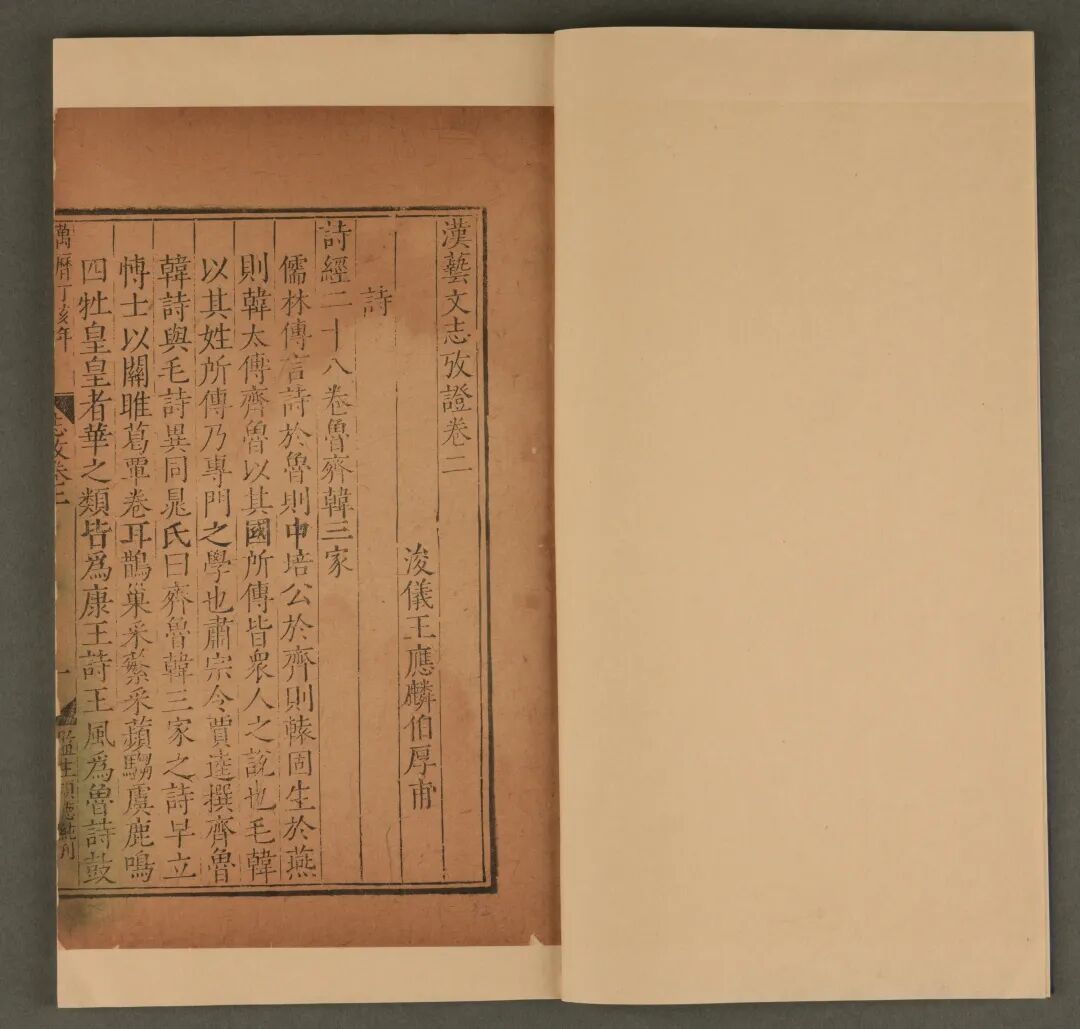 漢藝文志攷證卷二
浚儀王應麟伯厚甫
詩
詩經二十八卷魯齊韓三家
儒林傳言詩於魯則申培公於齊則轅固生於燕
則韓太傅齊魯以其國所傳皆衆人之說也毛韓
以其姓所傳乃專門之學也肅宗令賈逵撰齊魯
韓詩與毛詩異同晁氏曰齊魯韓三家之詩早立
博士以關雎葛覃卷耳鵲巢采蘩采蘋騶虞鹿鳴
四牡皇皇者華之類皆爲康王詩王風爲魯詩鼓
萬曆丁亥年
志攷卷二
一
監生 刊